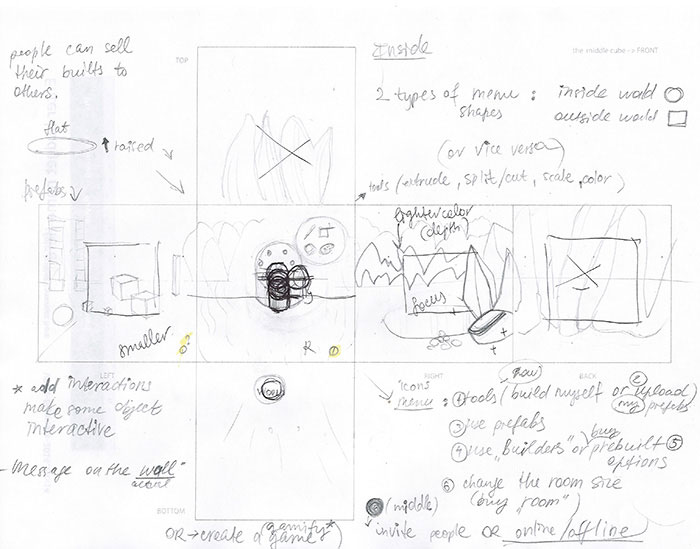 people can sell
their builts to
others.
TOP
Inside
the middle cube -> FRONT
2 types of menu :
shapes
inside world
outside world
(or vice versa)
flat
raised
tools (extrude, split/cut, scale, color)
prefabs
lighter color
(depth)
focus
smaller
R
LEFT
RIGHT
BACK
* add interactions
make some object
interactive
- Message on the "wall"
icons
menu : ① tools (build myself or ② upload
(new)
my prefabs
③ use prefabs
④ use "Builders" or prebuilt ⑤
buy
options
⑥ change the room size
(buy "room")
BOTTOM
(middle)
invite people OR online/offline
OR → create a game
(gamify*)